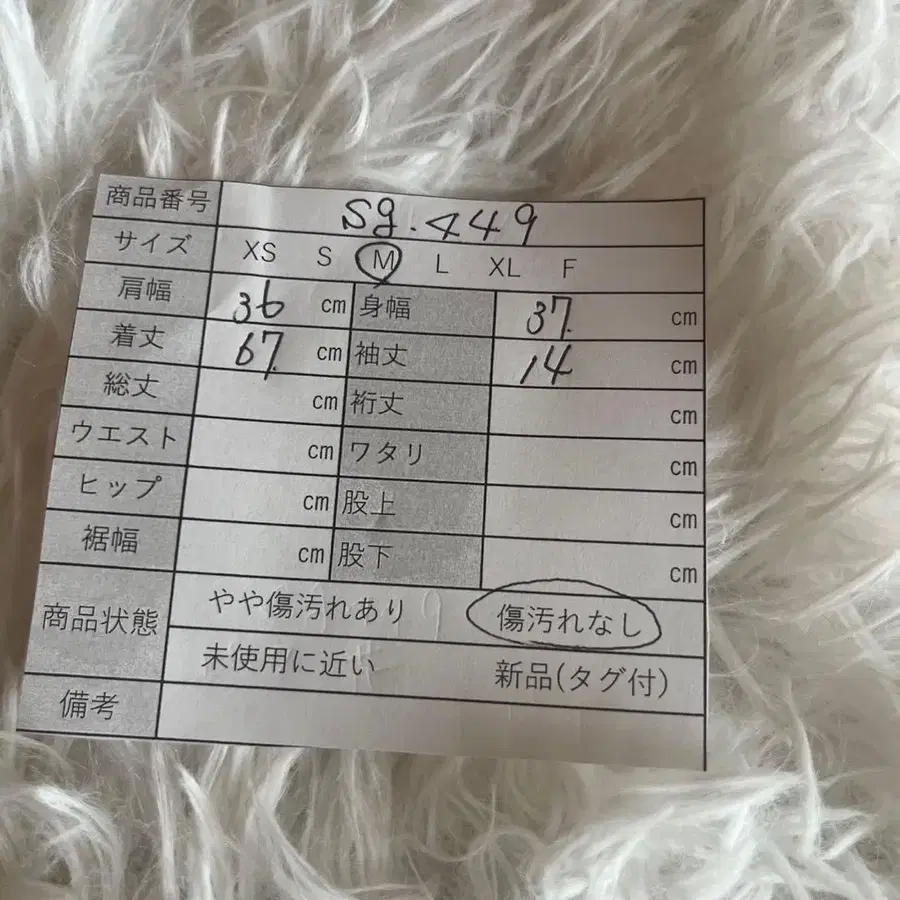 商品番号 sg.449
サイズ XS S M L XL F
肩幅 36 cm 身幅 37. cm
着丈 67. cm 袖丈 14 cm
総丈 cm 裄丈 cm
ウエスト cm ワタリ cm
ヒップ cm 股上 cm
裾幅 cm 股下 cm
商品状態 やや傷汚れあり 傷汚れなし
未使用に近い 新品(タグ付)
備考